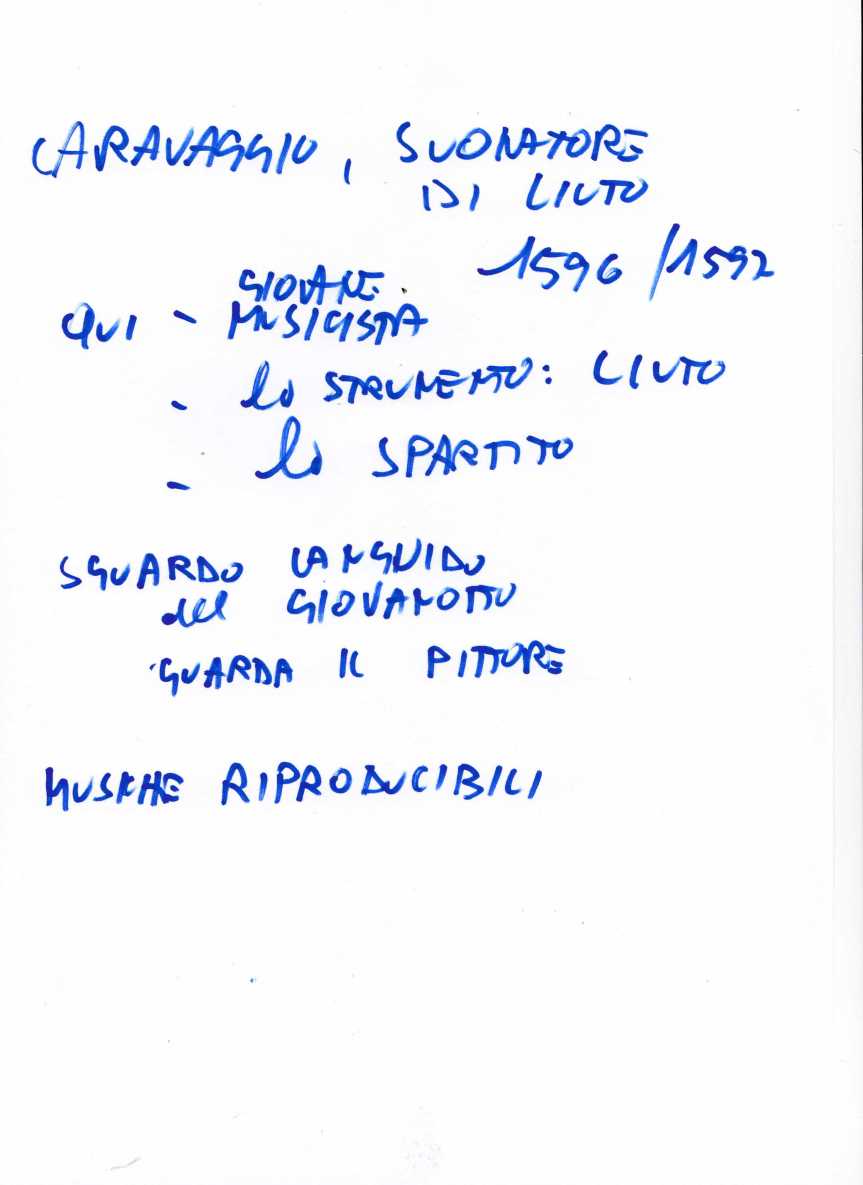 CARAVAGGIO, SUONATORE
DI LIUTO
1596/1592
GIOVANE
QUI - MUSICISTA
- lo STRUMENTO: LIUTO
- lo SPARTITO
SGUARDO LANGUIDO
del GIOVANOTTO
GUARDA IL PITTORE
MUSICHE RIPRODUCIBILI